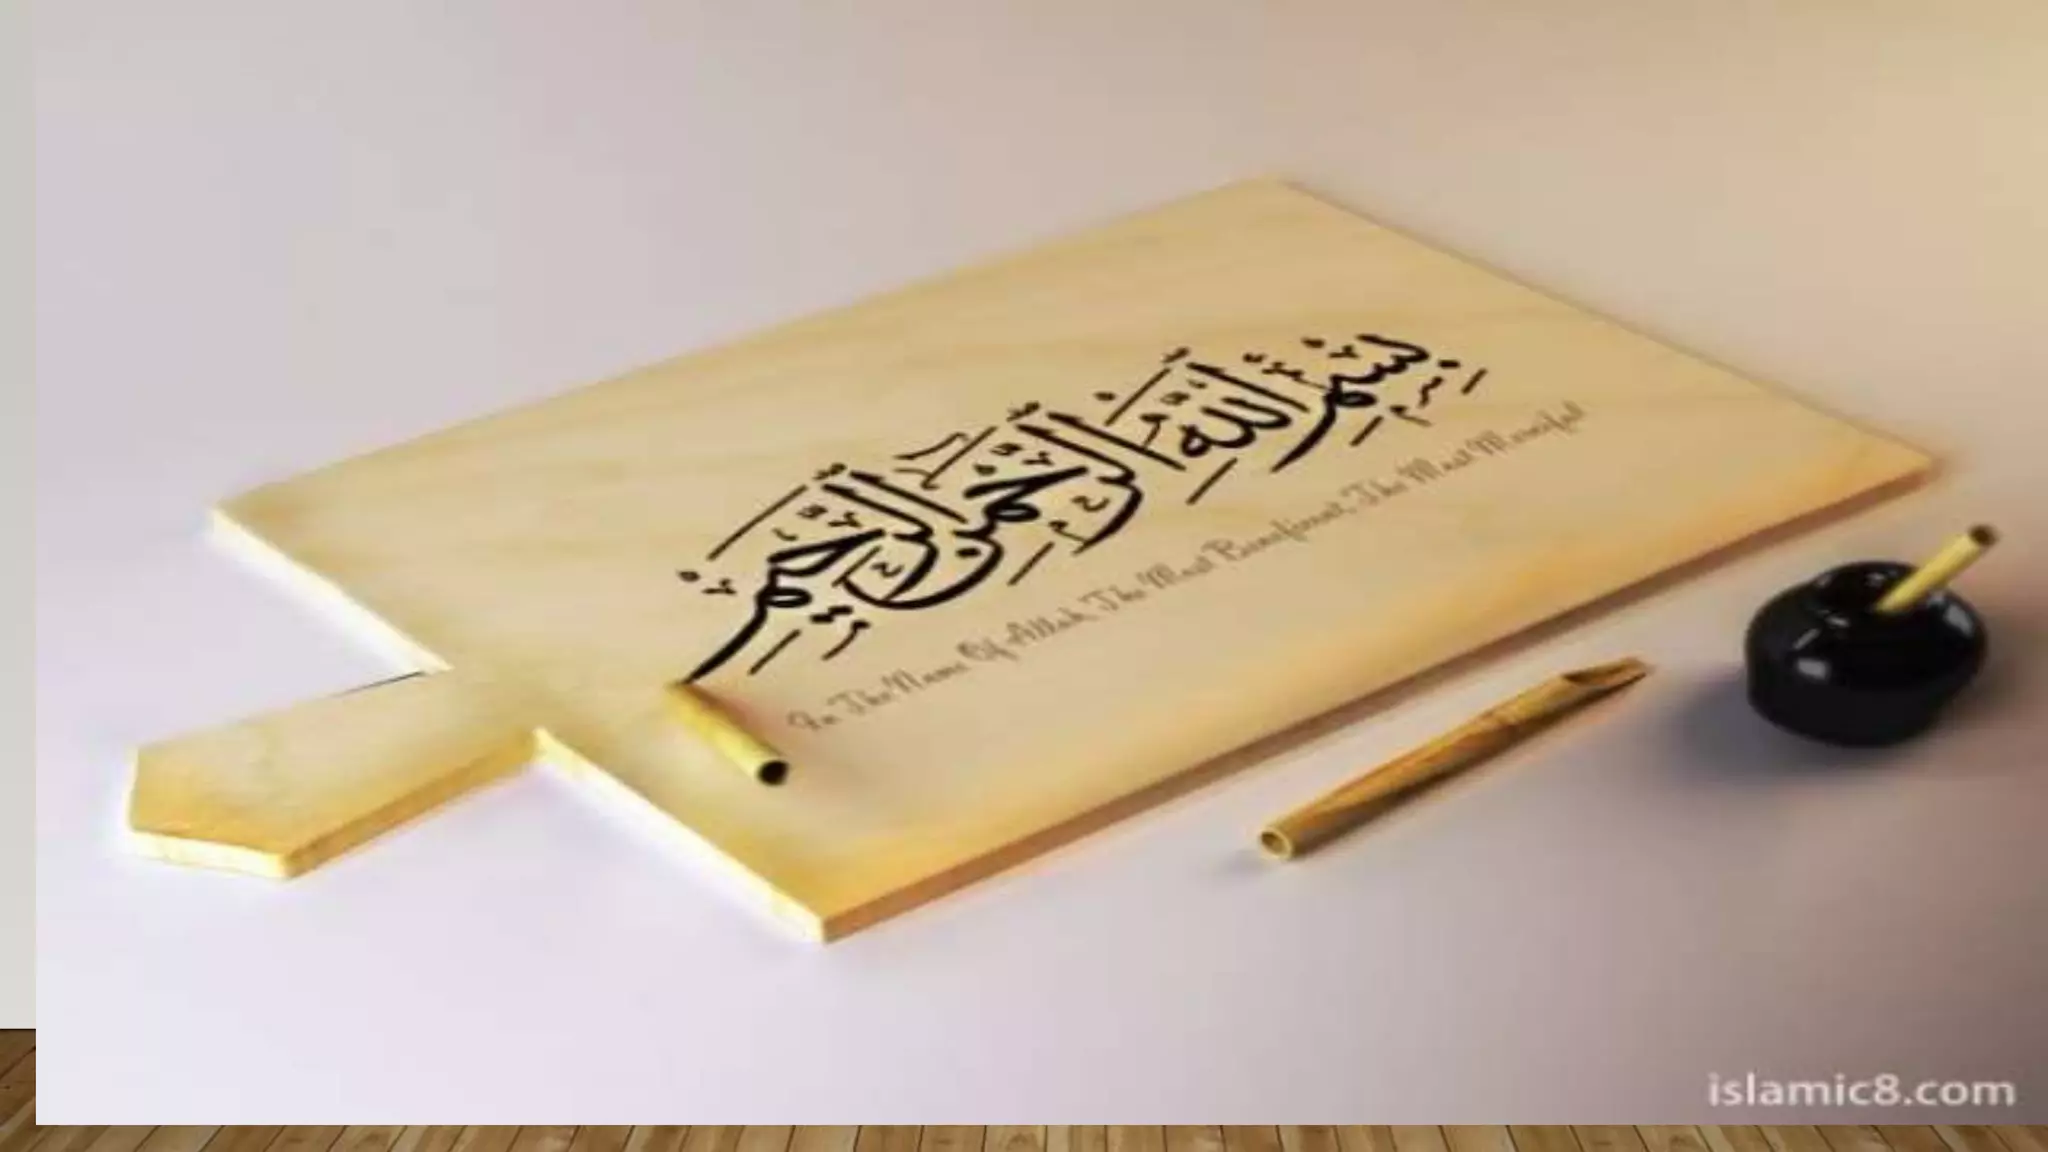 بِسْمِ اللَّهِ الرَّحْمَٰنِ الرَّحِيمِ
In The Name Of Allah, The Most Beneficent, The Most Merciful
islamic8.com